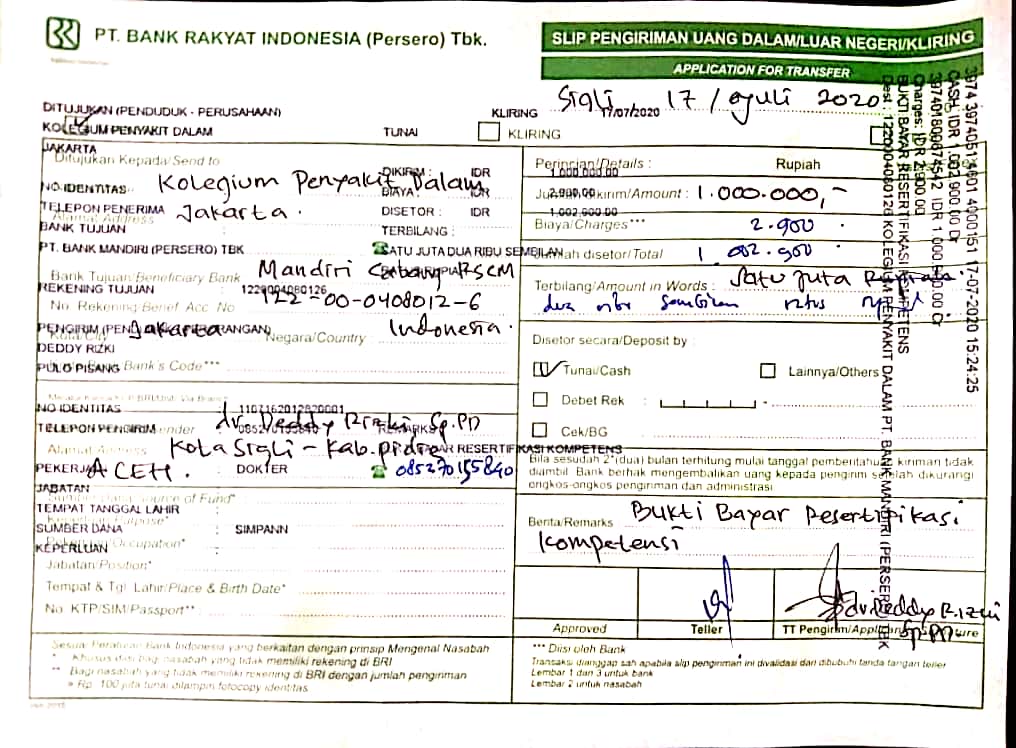 PT. BANK RAKYAT INDONESIA (Persero) Tbk.
SLIP PENGIRIMAN UANG DALAM/LUAR NEGERI/KLIRING
APPLICATION FOR TRANSFER
DITUJUKAN (PENDUDUK - PERUSAHAAN)
KLIRING
Sigli, 17 / Juli 2020
17/07/2020
KOLEGIUM PENYAKIT DALAM
TUNAI
KLIRING
JAKARTA
Ditujukan Kepada/Send to
DIKIRIM : IDR 1.000.000.00
Perincian/Details :
Rupiah
NO IDENTITAS
Kolegium Penyakit Dalam
BIAYA : IDR 2,900.00
Jumlah dikirim/Amount : 1.000.000,-
TELEPON PENERIMA
Alamat/Address
Jakarta.
DISETOR : IDR 1,002,900.00
Biaya/Charges*** 2.900
BANK TUJUAN
TERBILANG :
PT. BANK MANDIRI (PERSERO) TBK
SATU JUTA DUA RIBU SEMBILAN
Jumlah disetor/Total 1.002.900
Bank Tujuan/Beneficiary Bank Mandiri Cabang RSCM
Terbilang/Amount in Words : Satu juta
dua ribu Sembilan ratus rupiah
REKENING TUJUAN
1220004080126
No. Rekening/Benef. Acc No 122-00-0408012-6
Jakarta
Negara/Country : Indonesia.
DEDDY RIZKI
PULO PISANG
Bank's Code***
Disetor secara/Deposit by :
Tunai/Cash
Lainnya/Others
Debet Rek :
Cek/BG
NO IDENTITAS
TELEPON PENGIRIM
dr. Deddy Rizki, Sp.PD
Alamat/Address
Kota Sigli - Kab. Pidie
RESERTIFIKASI KOMPETENSI
ACEH.
DOKTER
085270155840
Bila sesudah 2*(dua) bulan terhitung mulai tanggal pemberitahuan kiriman tidak
diambil. Bank berhak mengembalikan uang kepada pengirim setelah dikurangi
ongkos-ongkos pengiriman dan administrasi
JABATAN
TEMPAT TANGGAL LAHIR
SUMBER DANA : SIMPANN
KEPERLUAN :
Jabatan/Position*
Tempat & Tgl. Lahir/Place & Birth Date*
No. KTP/SIM/Passport**
Berita/Remarks Bukti Bayar Resertifikasi
Kompetensi
dr. Deddy Rizki
Sp.PD
Approved
Teller
Sesuai Peraturan Bank Indonesia yang berkaitan dengan prinsip Mengenal Nasabah
* Khusus diisi bagi nasabah yang tidak memiliki rekening di BRI
** Bagi nasabah yang tidak memiliki rekening di BRI dengan jumlah pengiriman
≥ Rp. 100 juta tunai dilampiri fotocopy identitas
*** Diisi oleh Bank
Transaksi dianggap sah apabila slip pengiriman ini divalidasi dan dibubuhi tanda tangan teller
Lembar 1 dan 3 untuk bank
Lembar 2 untuk nasabah
CASH IDR 1.002.900.00 Dr
Charges: IDR 2.900.00
BUKTI BAYAR RESERTIFIKASI KOMPETENS
Dest : 1220004080126 KOLEGIUM PENYAKIT DALAM PT. BANK MANDIRI (PERSERO) TBK